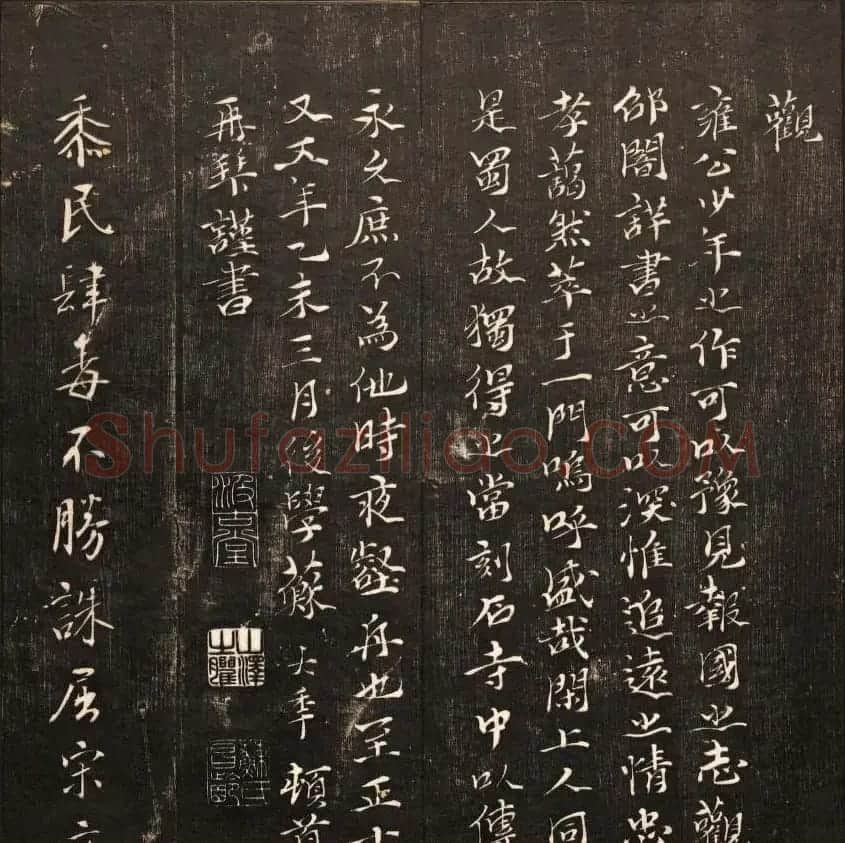 觀
雍公少年之作可以豫見報國之志觀
邵閣詳書之意可以深惟追遠之情忠
孝藹然萃于一門嗚呼盛哉閑上人同
是蜀人故獨得之當刻石寺中以傳
永久庶不為他時夜壑舟也至正十
又五年乙未三月後學蘇大年頓首
再拜謹書
山澤
黍民肆毒不勝誅屈宋
Shufaziliao.COM